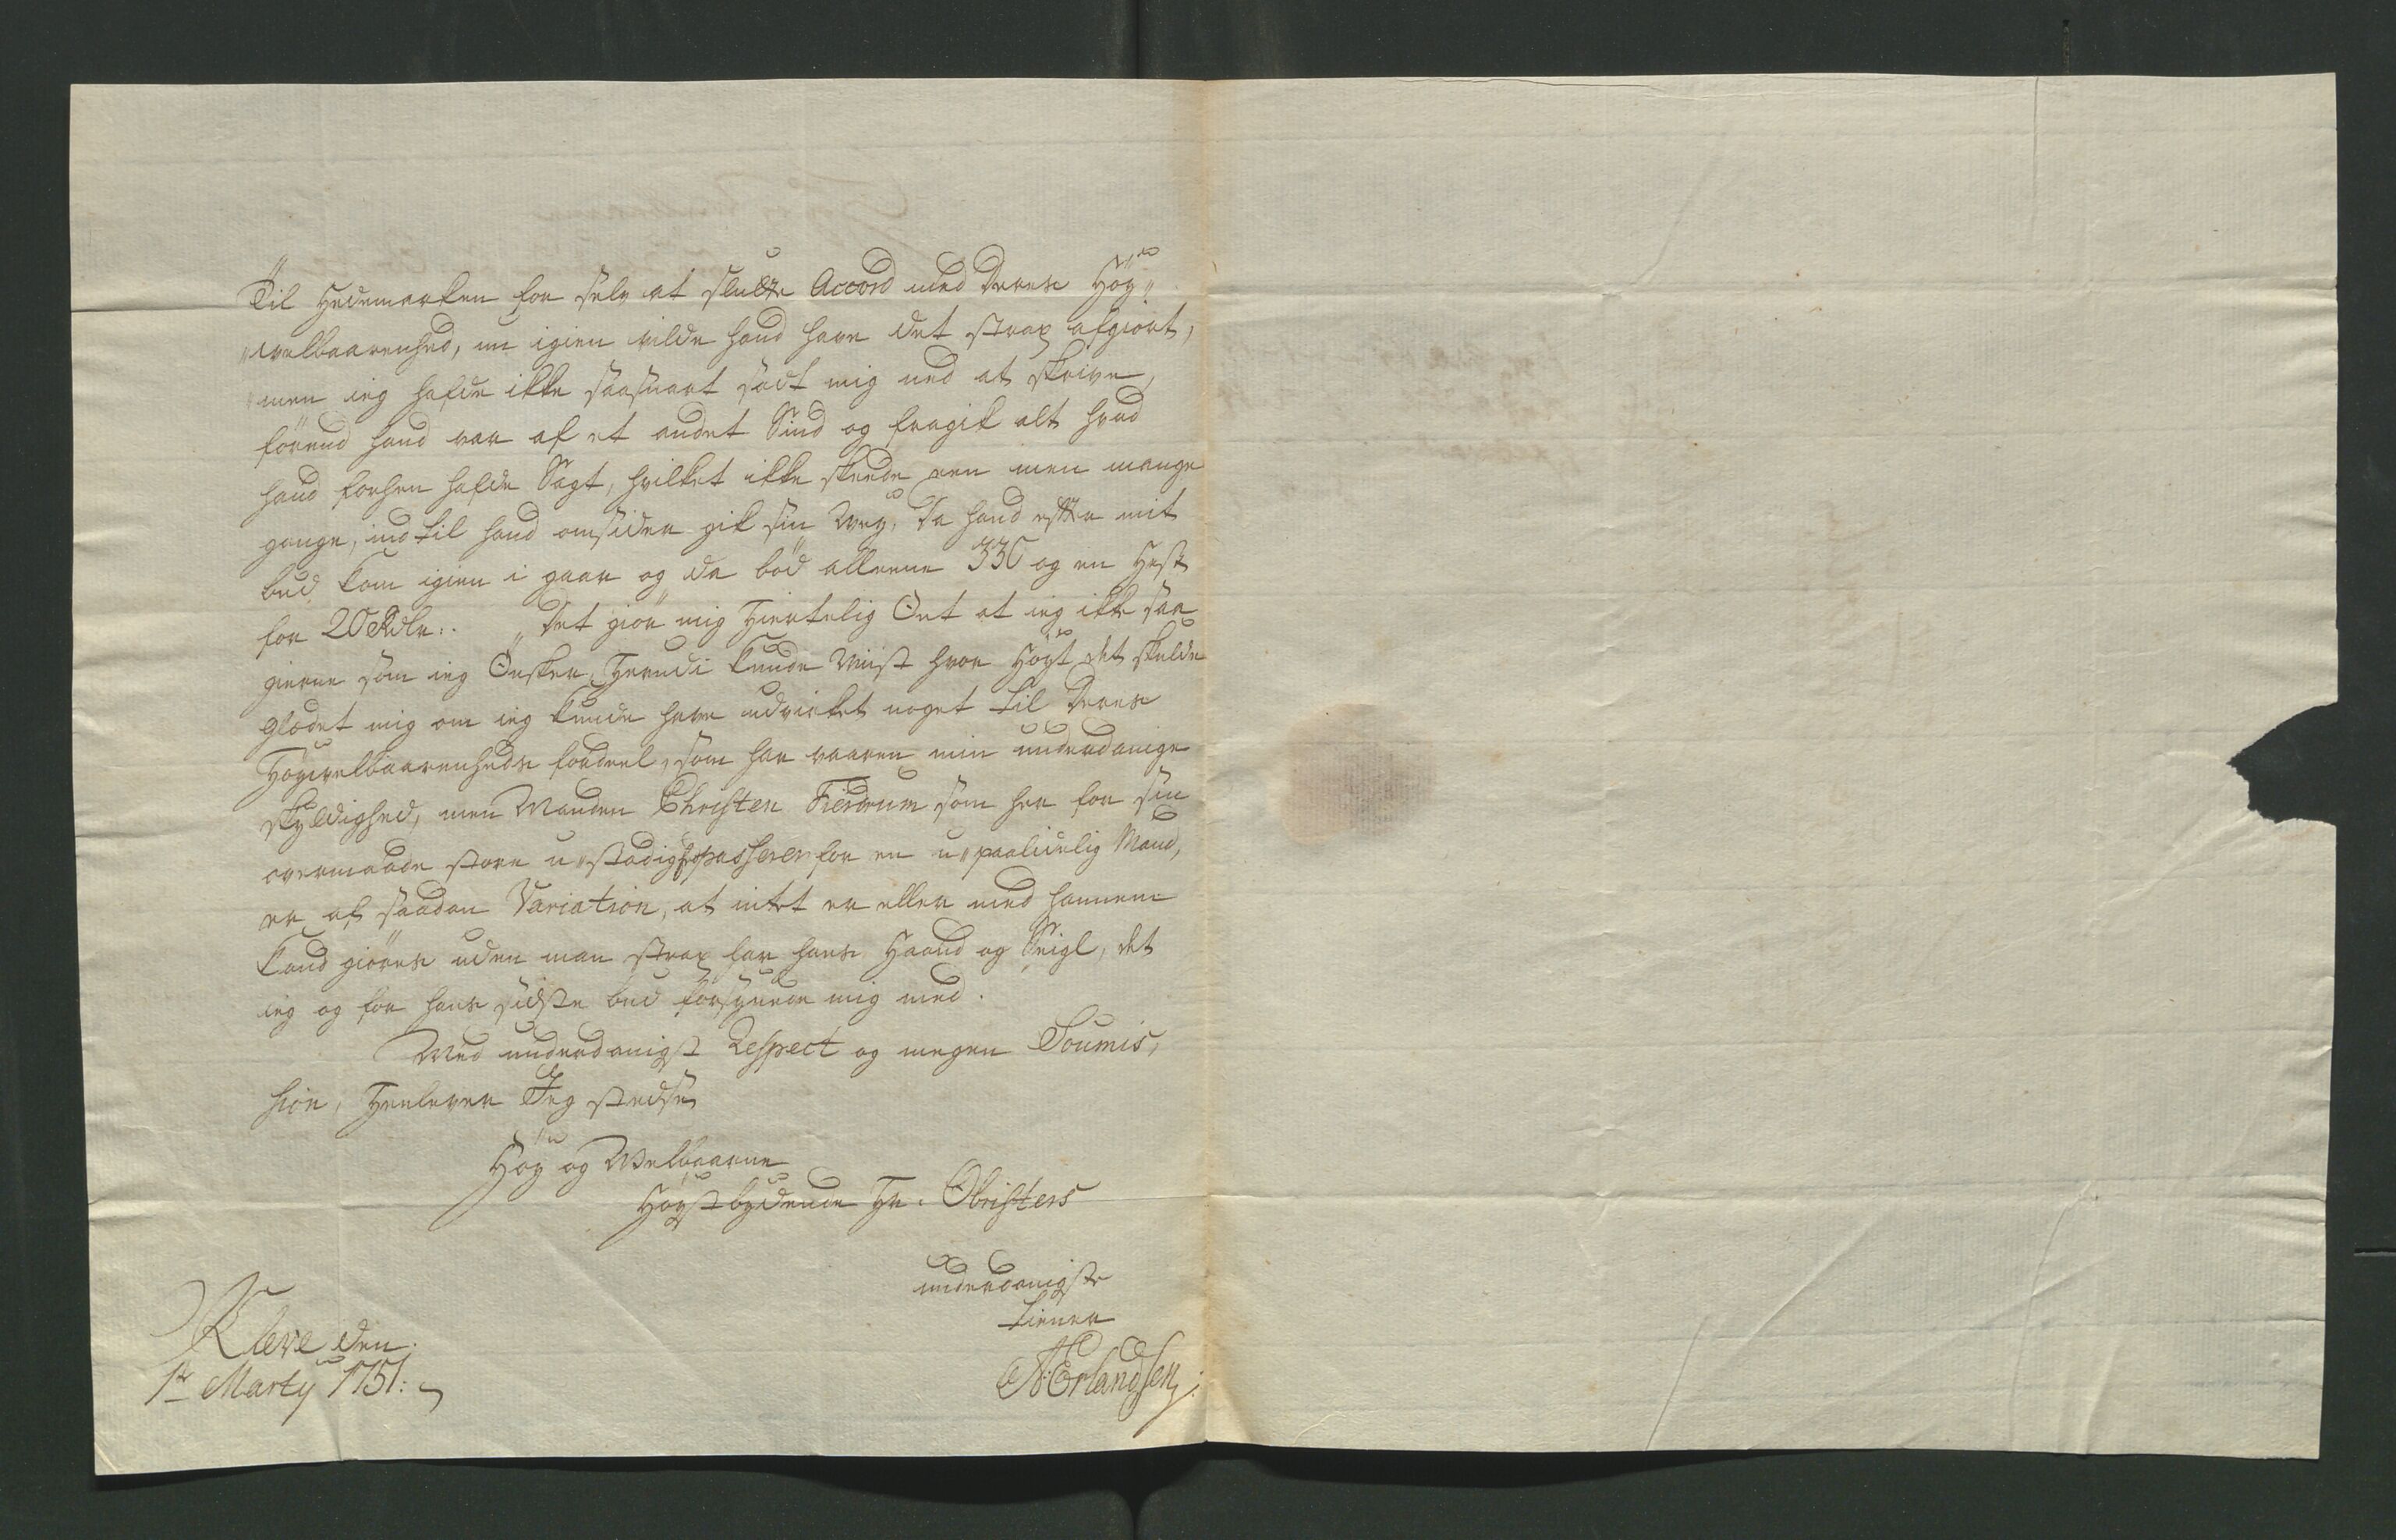 Til Hedemarken for selv at slutte Accord med Deres Høy„
„welbaarenhed, nu igien vilde hand have det strax afgiort,
men ieg hafde ikke saasnart sadt mig ned at skrive,
førend hand var af et andet Sind og fragik alt hvad
hand forhen hafde Sagt, hvilket ikke skeede een men mange
gange, ind til hand omsider gik sin Weg, Da hand efter mit
bud kom igien i gaar og da bød alleene 330 og en Hest
for 20 Rdlr:. Det giør mig Hiertelig Ont at ieg ikke saa
gierne som ieg Ønsker, Herudi kunde Wiist hvor Høyt det skulde
glædet mig om ieg kunde have udvirket noget til Deres
Høywelbaarenheds fordeel, som har vaaren min underdanige
skyldighed, men Manden Christen Fierdrum som her for sin
overmaade store u„stadighed passerer for en u„paalidelig Mand,
er af saadan Variation, at intet er eller med hannem
kand giøres uden man strax har hans Haand og Seigl, det
ieg og for hans sidste bud forsynede mig med.
Med underdanigst Respect og megen Soumis,
sion, Henlever Jeg stedse,
Høy og Welbaarne
Høystbydende Hr. Obristers
underdanigste
tiener
N: Erlandsen
Kleve den
1te Marty 1751: